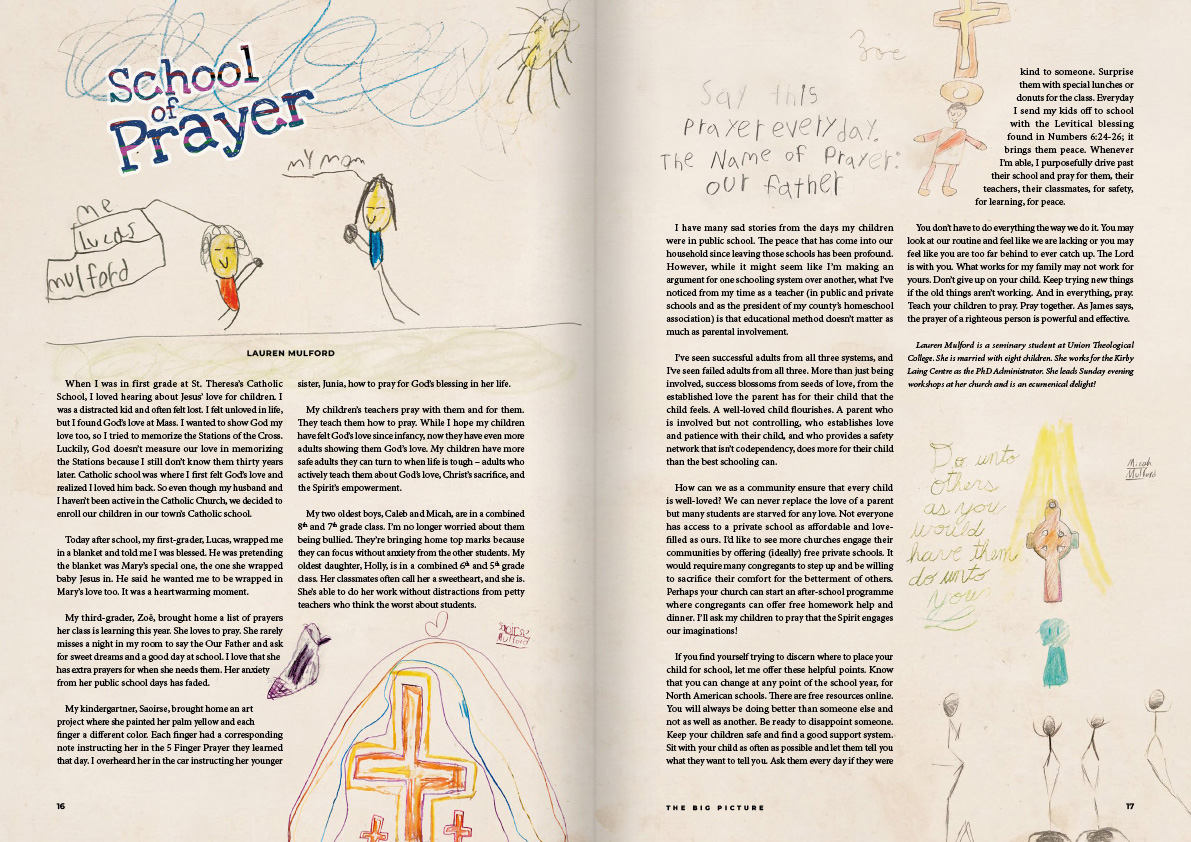 School
of
Prayer
my mom
me
lucas
mulford
LAUREN MULFORD
When I was in first grade at St. Theresa's Catholic
School, I loved hearing about Jesus' love for children. I
was a distracted kid and often felt lost. I felt unloved in life,
but I found God's love at Mass. I wanted to show God my
love too, so I tried to memorize the Stations of the Cross.
Luckily, God doesn't measure our love in memorizing
the Stations because I still don't know them thirty years
later. Catholic school was where I first felt God's love and
realized I loved him back. So even though my husband and
I haven't been active in the Catholic Church, we decided to
enroll our children in our town's Catholic school.
Today after school, my first-grader, Lucas, wrapped me
in a blanket and told me I was blessed. He was pretending
the blanket was Mary's special one, the one she wrapped
baby Jesus in. He said he wanted me to be wrapped in
Mary's love too. It was a heartwarming moment.
My third-grader, Zoë, brought home a list of prayers
her class is learning this year. She loves to pray. She rarely
misses a night in my room to say the Our Father and ask
for sweet dreams and a good day at school. I love that she
has extra prayers for when she needs them. Her anxiety
from her public school days has faded.
My kindergartner, Saoirse, brought home an art
project where she painted her palm yellow and each
finger a different color. Each finger had a corresponding
note instructing her in the 5 Finger Prayer they learned
that day. I overheard her in the car instructing her younger
sister, Junia, how to pray for God's blessing in her life.
My children's teachers pray with them and for them.
They teach them how to pray. While I hope my children
have felt God's love since infancy, now they have even more
adults showing them God's love. My children have more
safe adults they can turn to when life is tough – adults who
actively teach them about God's love, Christ's sacrifice, and
the Spirit's empowerment.
My two oldest boys, Caleb and Micah, are in a combined
8th and 7th grade class. I'm no longer worried about them
being bullied. They're bringing home top marks because
they can focus without anxiety from the other students. My
oldest daughter, Holly, is in a combined 6th and 5th grade
class. Her classmates often call her a sweetheart, and she is.
She's able to do her work without distractions from petty
teachers who think the worst about students.
Saoirse
Mulford
16
Zoe
Say this
prayer everyday.
The Name of Prayer:
our father
I have many sad stories from the days my children
were in public school. The peace that has come into our
household since leaving those schools has been profound.
However, while it might seem like I'm making an
argument for one schooling system over another, what I've
noticed from my time as a teacher (in public and private
schools and as the president of my county's homeschool
association) is that educational method doesn't matter as
much as parental involvement.
I've seen successful adults from all three systems, and
I've seen failed adults from all three. More than just being
involved, success blossoms from seeds of love, from the
established love the parent has for their child that the
child feels. A well-loved child flourishes. A parent who
is involved but not controlling, who establishes love
and patience with their child, and who provides a safety
network that isn't codependency, does more for their child
than the best schooling can.
How can we as a community ensure that every child
is well-loved? We can never replace the love of a parent
but many students are starved for any love. Not everyone
has access to a private school as affordable and love-
filled as ours. I'd like to see more churches engage their
communities by offering (ideally) free private schools. It
would require many congregants to step up and be willing
to sacrifice their comfort for the betterment of others.
Perhaps your church can start an after-school programme
where congregants can offer free homework help and
dinner. I'll ask my children to pray that the Spirit engages
our imaginations!
If you find yourself trying to discern where to place your
child for school, let me offer these helpful points. Know
that you can change at any point of the school year, for
North American schools. There are free resources online.
You will always be doing better than someone else and
not as well as another. Be ready to disappoint someone.
Keep your children safe and find a good support system.
Sit with your child as often as possible and let them tell you
what they want to tell you. Ask them every day if they were
kind to someone. Surprise
them with special lunches or
donuts for the class. Everyday
I send my kids off to school
with the Levitical blessing
found in Numbers 6:24-26; it
brings them peace. Whenever
I'm able, I purposefully drive past
their school and pray for them, their
teachers, their classmates, for safety,
for learning, for peace.
You don't have to do everything the way we do it. You may
look at our routine and feel like we are lacking or you may
feel like you are too far behind to ever catch up. The Lord
is with you. What works for my family may not work for
yours. Don't give up on your child. Keep trying new things
if the old things aren't working. And in everything, pray.
Teach your children to pray. Pray together. As James says,
the prayer of a righteous person is powerful and effective.
Lauren Mulford is a seminary student at Union Theological
College. She is married with eight children. She works for the Kirby
Laing Centre as the PhD Administrator. She leads Sunday evening
workshops at her church and is an ecumenical delight!
Do unto
others
as you
would
have them
do unto
you
Micah
Mulford
THE BIG PICTURE
17